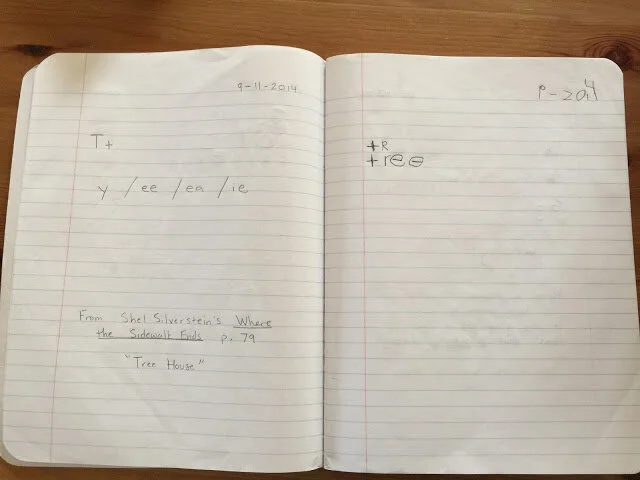 9-11-2014
T+
y / ee / ea / ie
From Shel Silverstein's Where
the Sidewalk Ends p. 79
"Tree House"
9-2014
+R
+ree